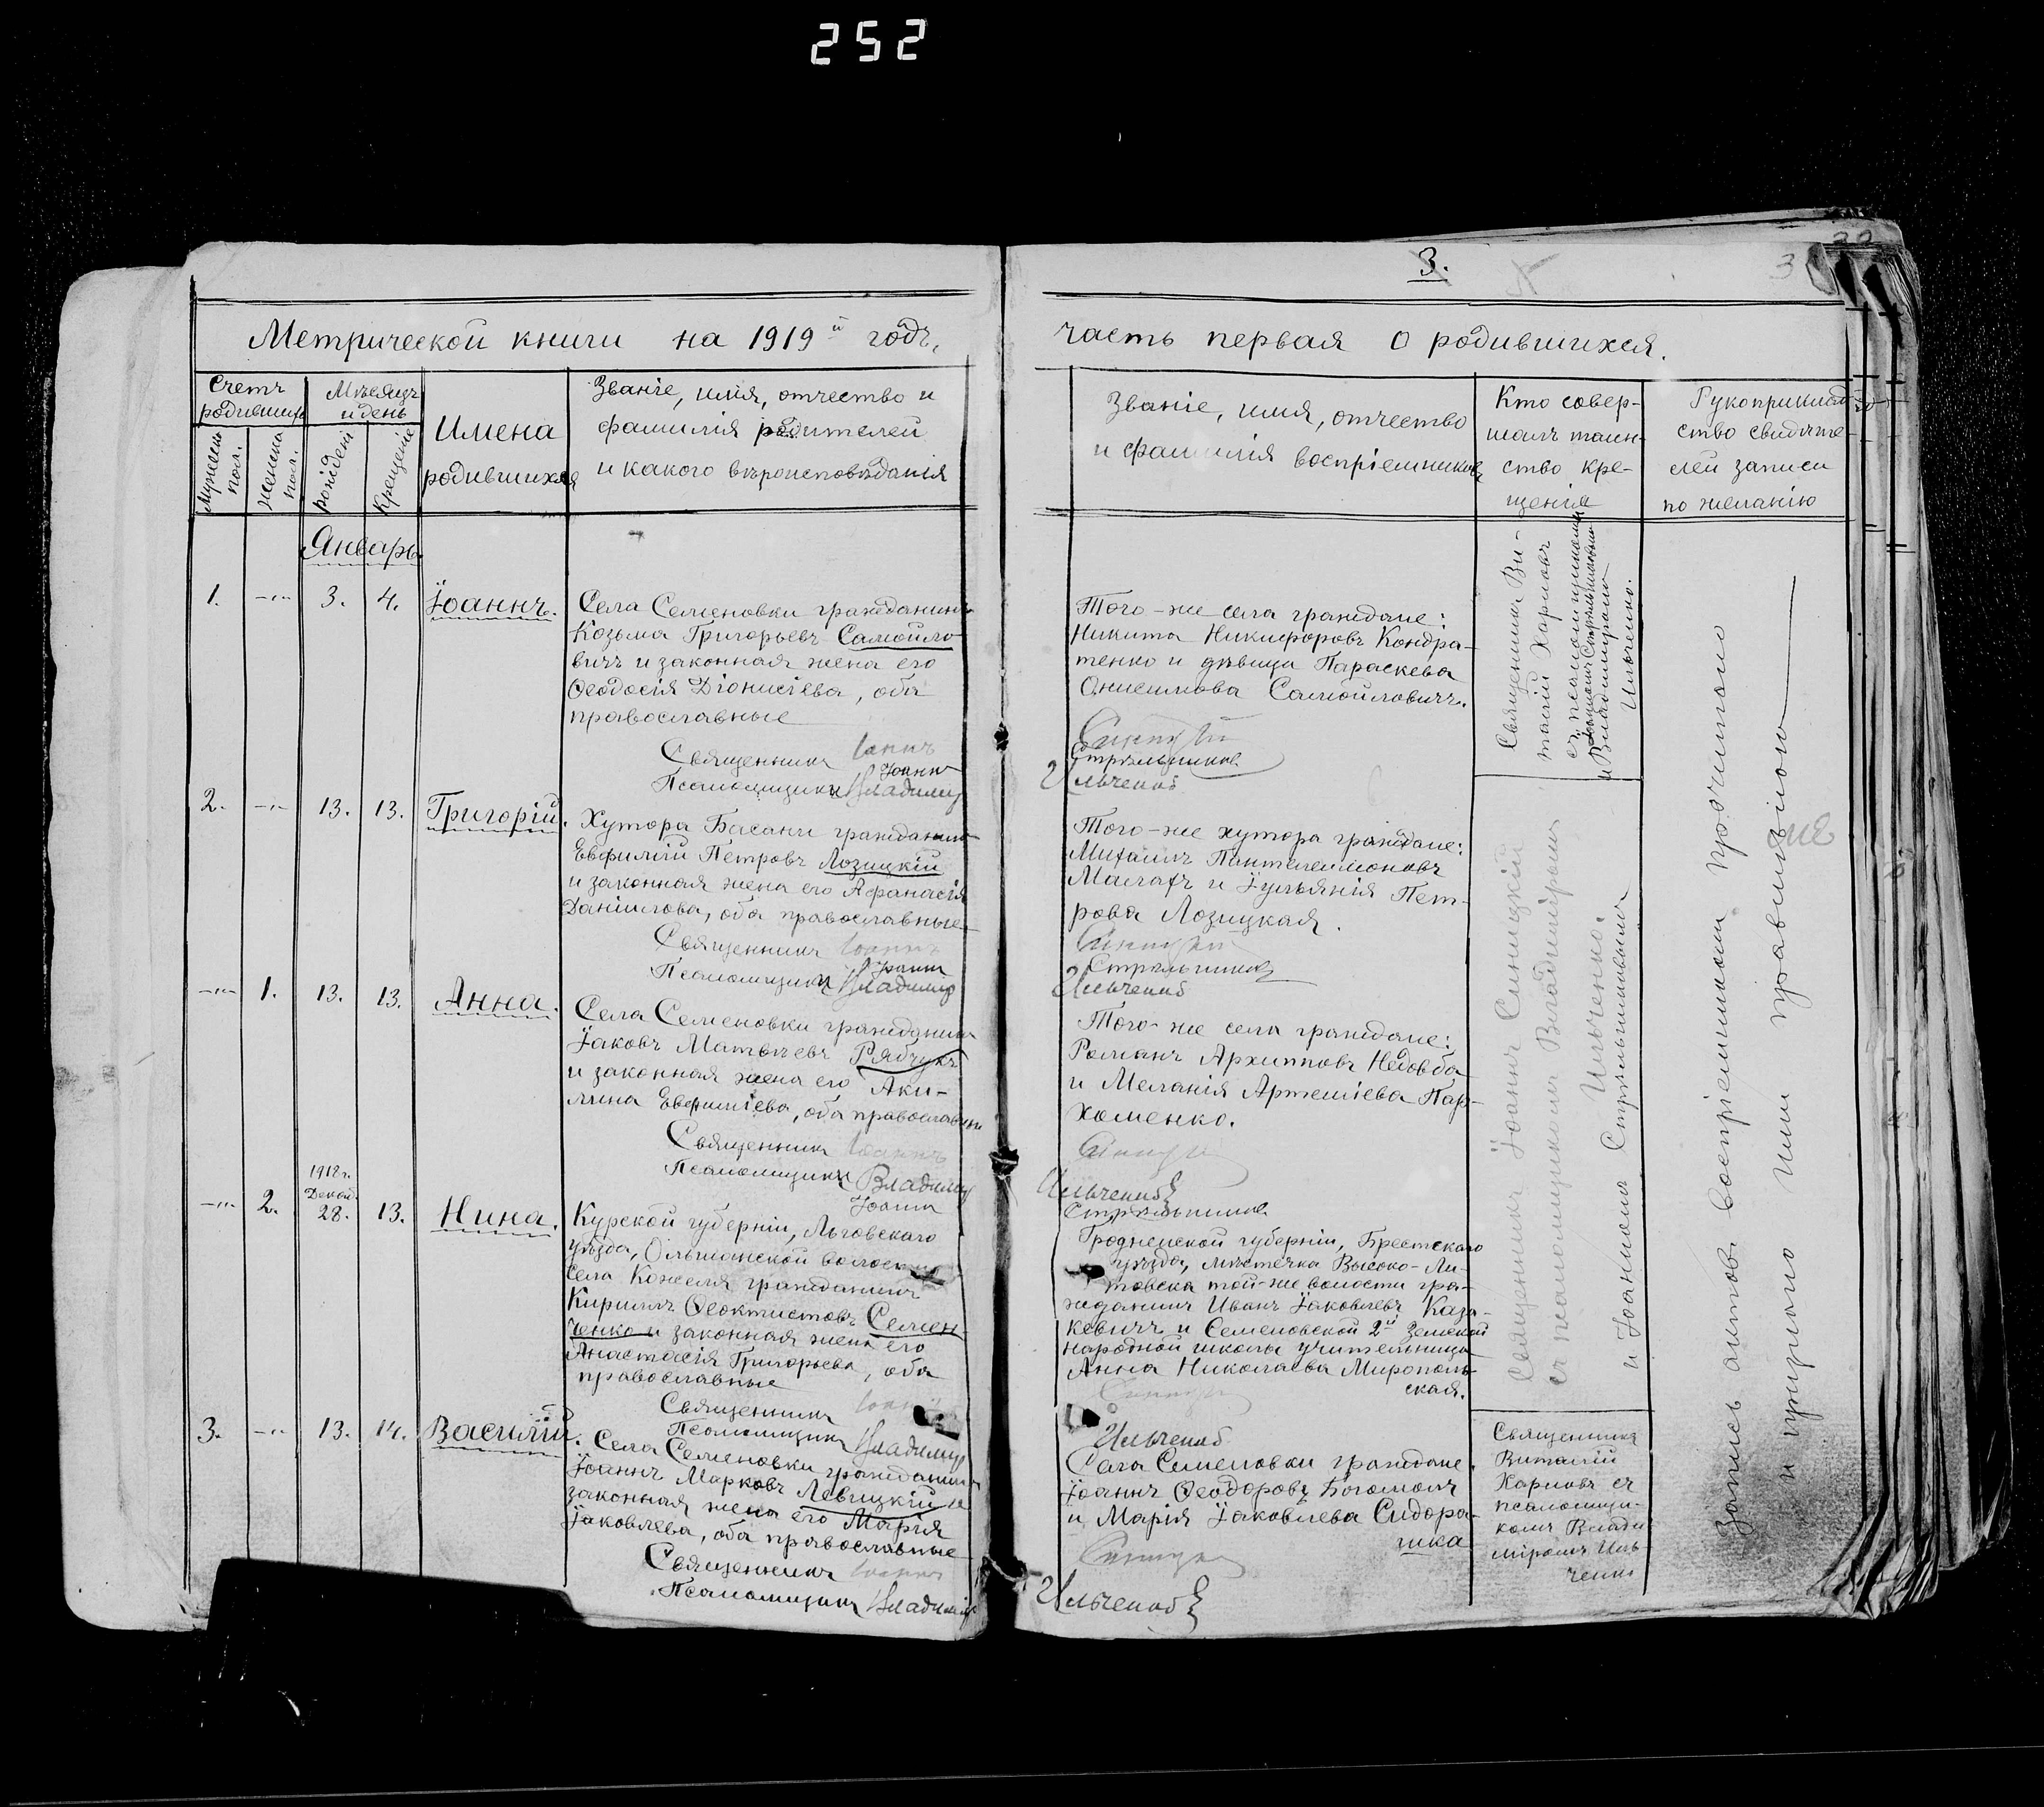 252
3.
3
Метрической книги на 1919й годъ,
часть первая о родившихся.
Счетъ
родившихся
Мѣсяцъ
и день
Мужескъ
пол.
Женска
пол.
рожденi
крещенiе
Имена
родившихся
Званіе, имя, отчество и
фамилія родителей
и какого вѣроисповѣданія
Званіе, имя, отчество
и фамилія воспріемниковъ
Кто совер-
шалъ таин-
ство кре-
щенія
Рукоприклад-
ство свидѣте-
лей записи
по желанію
Январь
1.
3.
4.
Іоаннъ.
Села Семеновки гражданинъ
Козьма Григорьевъ Самойло-
вичъ и законная жена его
Ѳеодосія Діонисіева, оба
православные
Священникъ
Іоаннъ
Псаломщики Владимір
Того-же села граждане:
Никита Никифоровъ Кондра-
тенко и дѣвица Параскева
Онисимова Самойловичъ.
Синицкій
Стрѣльниковъ
Ильченко
Священникъ Ви-
талій Харловъ
съ псаломщиками
Іоанномъ Стрѣльниковымъ
и Владиміромъ
Ильченко.
2.
13.
13.
Григорій.
Хутора Басани гражданинъ
Евфимій Петровъ Лозицкій
и законная жена его Афанасія
Даніилова, оба православные
Священникъ Іоаннъ
Іоаннъ
Псаломщики Владимір
Того-же хутора граждане:
Михаилъ Пантелеимоновъ
Малафъ и Іульянія Пет-
рова Лозицкая.
Синицкій
Стрѣльниковъ
Ильченко
1.
13.
13.
Анна.
Села Семеновки гражданинъ
Іаковъ Матвѣевъ Рябчукъ
и законная жена его Аки-
лина Евфиміева, оба православные
Священникъ Іоаннъ
Псаломщики Владимір
Іоаннъ
Того-же села граждане:
Романъ Архипповъ Недовба
и Меланія Артеміева Пар-
хоменко.
Синицкій
Ильченко
Стрѣльниковъ
Священникъ Іоаннъ Синицкій
съ псаломщиками Владиміромъ
Ильченко
и Іоанномъ Стрѣльниковымъ
2.
1918 г.
Декаб.
28.
13.
Нина.
Курской губерніи, Льговскаго
уѣзда, Ольшанской волости
села Кожеля гражданинъ
Кириллъ Ѳеоктистовъ Семен-
ченко и законная жена его
Анастасія Григорьева, оба
православные
Священникъ Іоаннъ
Псаломщики Владимір
Гродненской губерніи, Брестскаго
уѣзда, мѣстечка Высоко-Ли-
товска той-же волости гра-
жданинъ Иванъ Іаковлевъ Каза-
кевичъ и Семеновской 2й земской
народной школы учительница
Анна Николаева Мирополь-
ская.
Синицкій
Ильченко
3.
13.
14.
Василій.
Села Семеновки гражданинъ
Іоаннъ Марковъ Левицкій и
законная жена его Марія
Іаковлева, оба православные
Священникъ Іоаннъ
Псаломщикъ Владимір
Села Семеновки граждане.
Іоаннъ Ѳеодоровъ Богомолъ
и Марія Іаковлева Сидора-
Синицкій
Ильченко
Священникъ
Виталій
Харловъ съ
псаломщи-
комъ Влади-
міромъ Иль-
ченко
Запись актовъ воспріемникамъ прочитано
и признано ими правильною